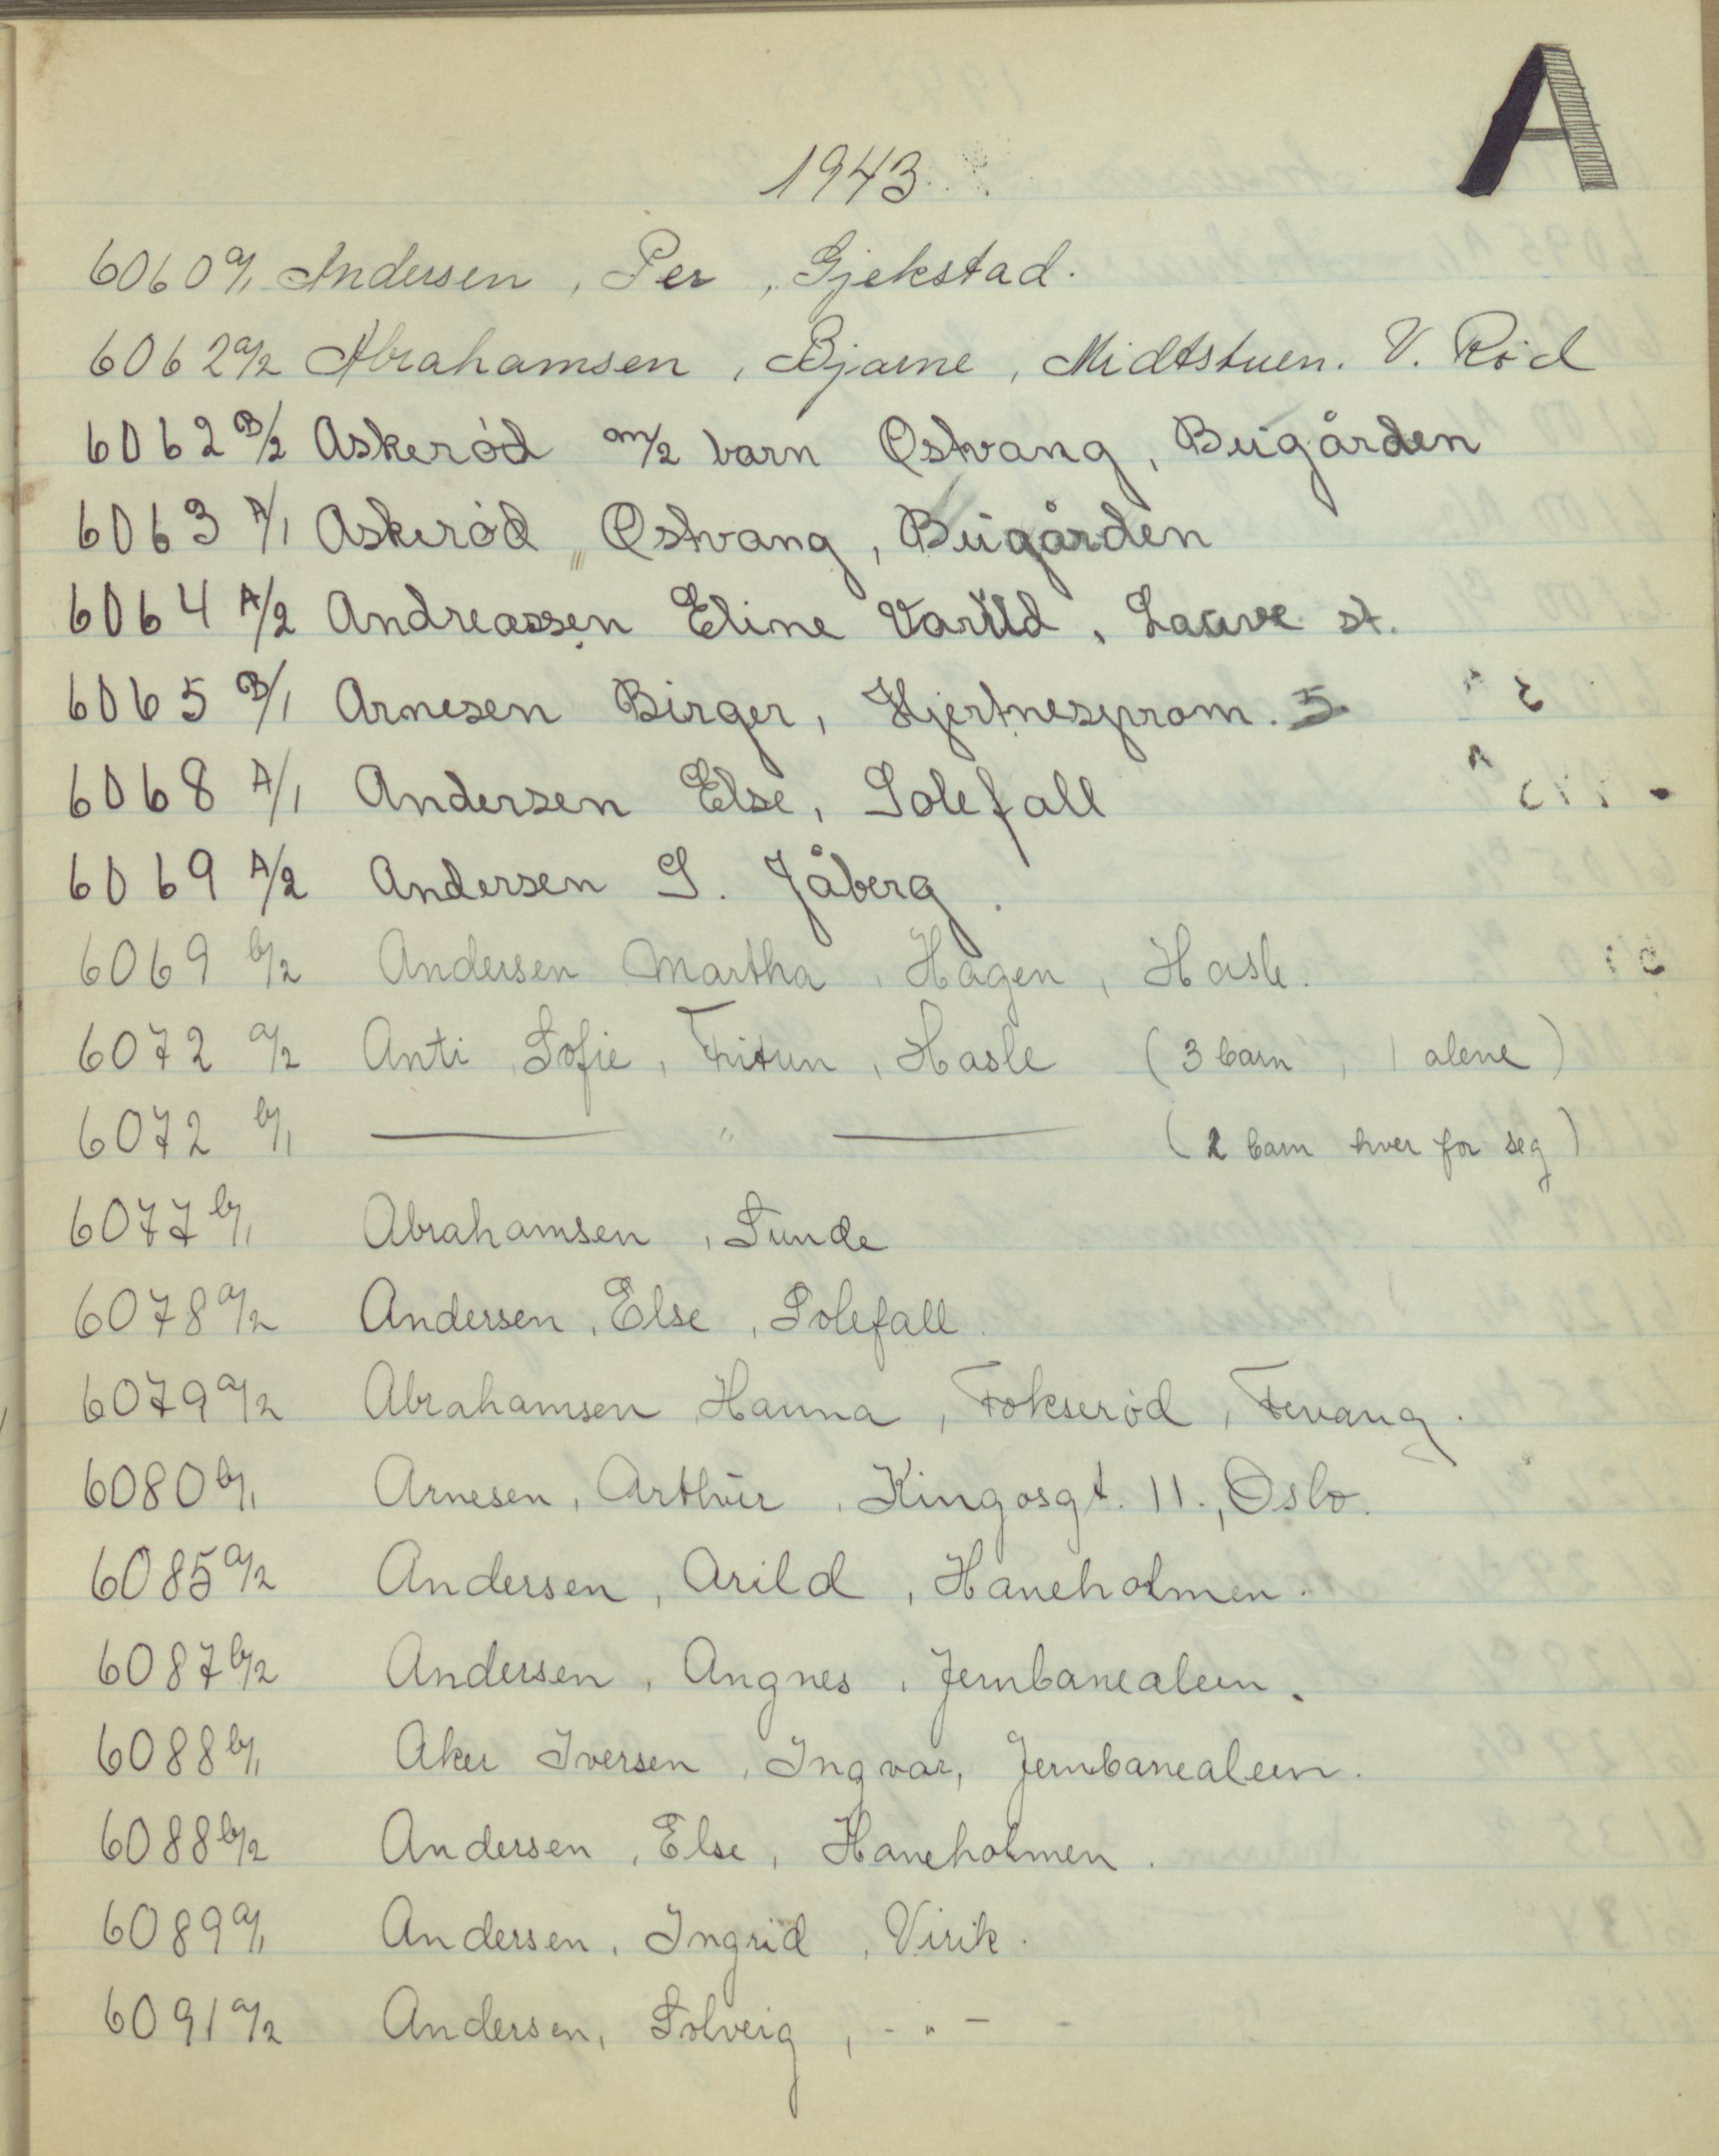 A
1943.
6060 a/1 Andersen, Per, Gjekstad.
6062 a/2 Abrahamsen, Bjarne, Midtstuen. V. Rød
6062 B/2 Askerød m/2 barn Østvang, Bugården
6063 A/1 Askerød " Østvang, Bugården
6064 A/2 Andreassen Eline Varild, Lauve st.
6065 B/1 Arnesen Birger, Hjertnesprom. 5
6068 A/1 Andersen Else, Solefall
6069 A/2 Andersen S. Jåberg.
6069 b/2 Andersen Martha, Hagen, Hasle.
6072 a/2 Anti, Sofie, Fritun, Hasle (3 barn, 1 alene)
6072 b/1 — " — (2 barn hver for seg)
6077 b/1 Abrahamsen, Sunde
6078 a/2 Andersen, Else, Solefall.
6079 a/2 Abrahamsen Hanna, Fokserød, Fevang.
6080 b/1 Arnesen, Arthur, Kingosgt. 11., Oslo.
6085 a/2 Andersen, Arild, Haneholmen.
6087 b/2 Andersen, Angnes, Jernbanealeen.
6088 b/1 Aker Iversen, Ingvar, Jernbanealeen.
6088 b/2 Andersen, Else, Haneholmen.
6089 a/1 Andersen, Ingrid, Virik.
6091 a/2 Andersen, Solveig, - " -